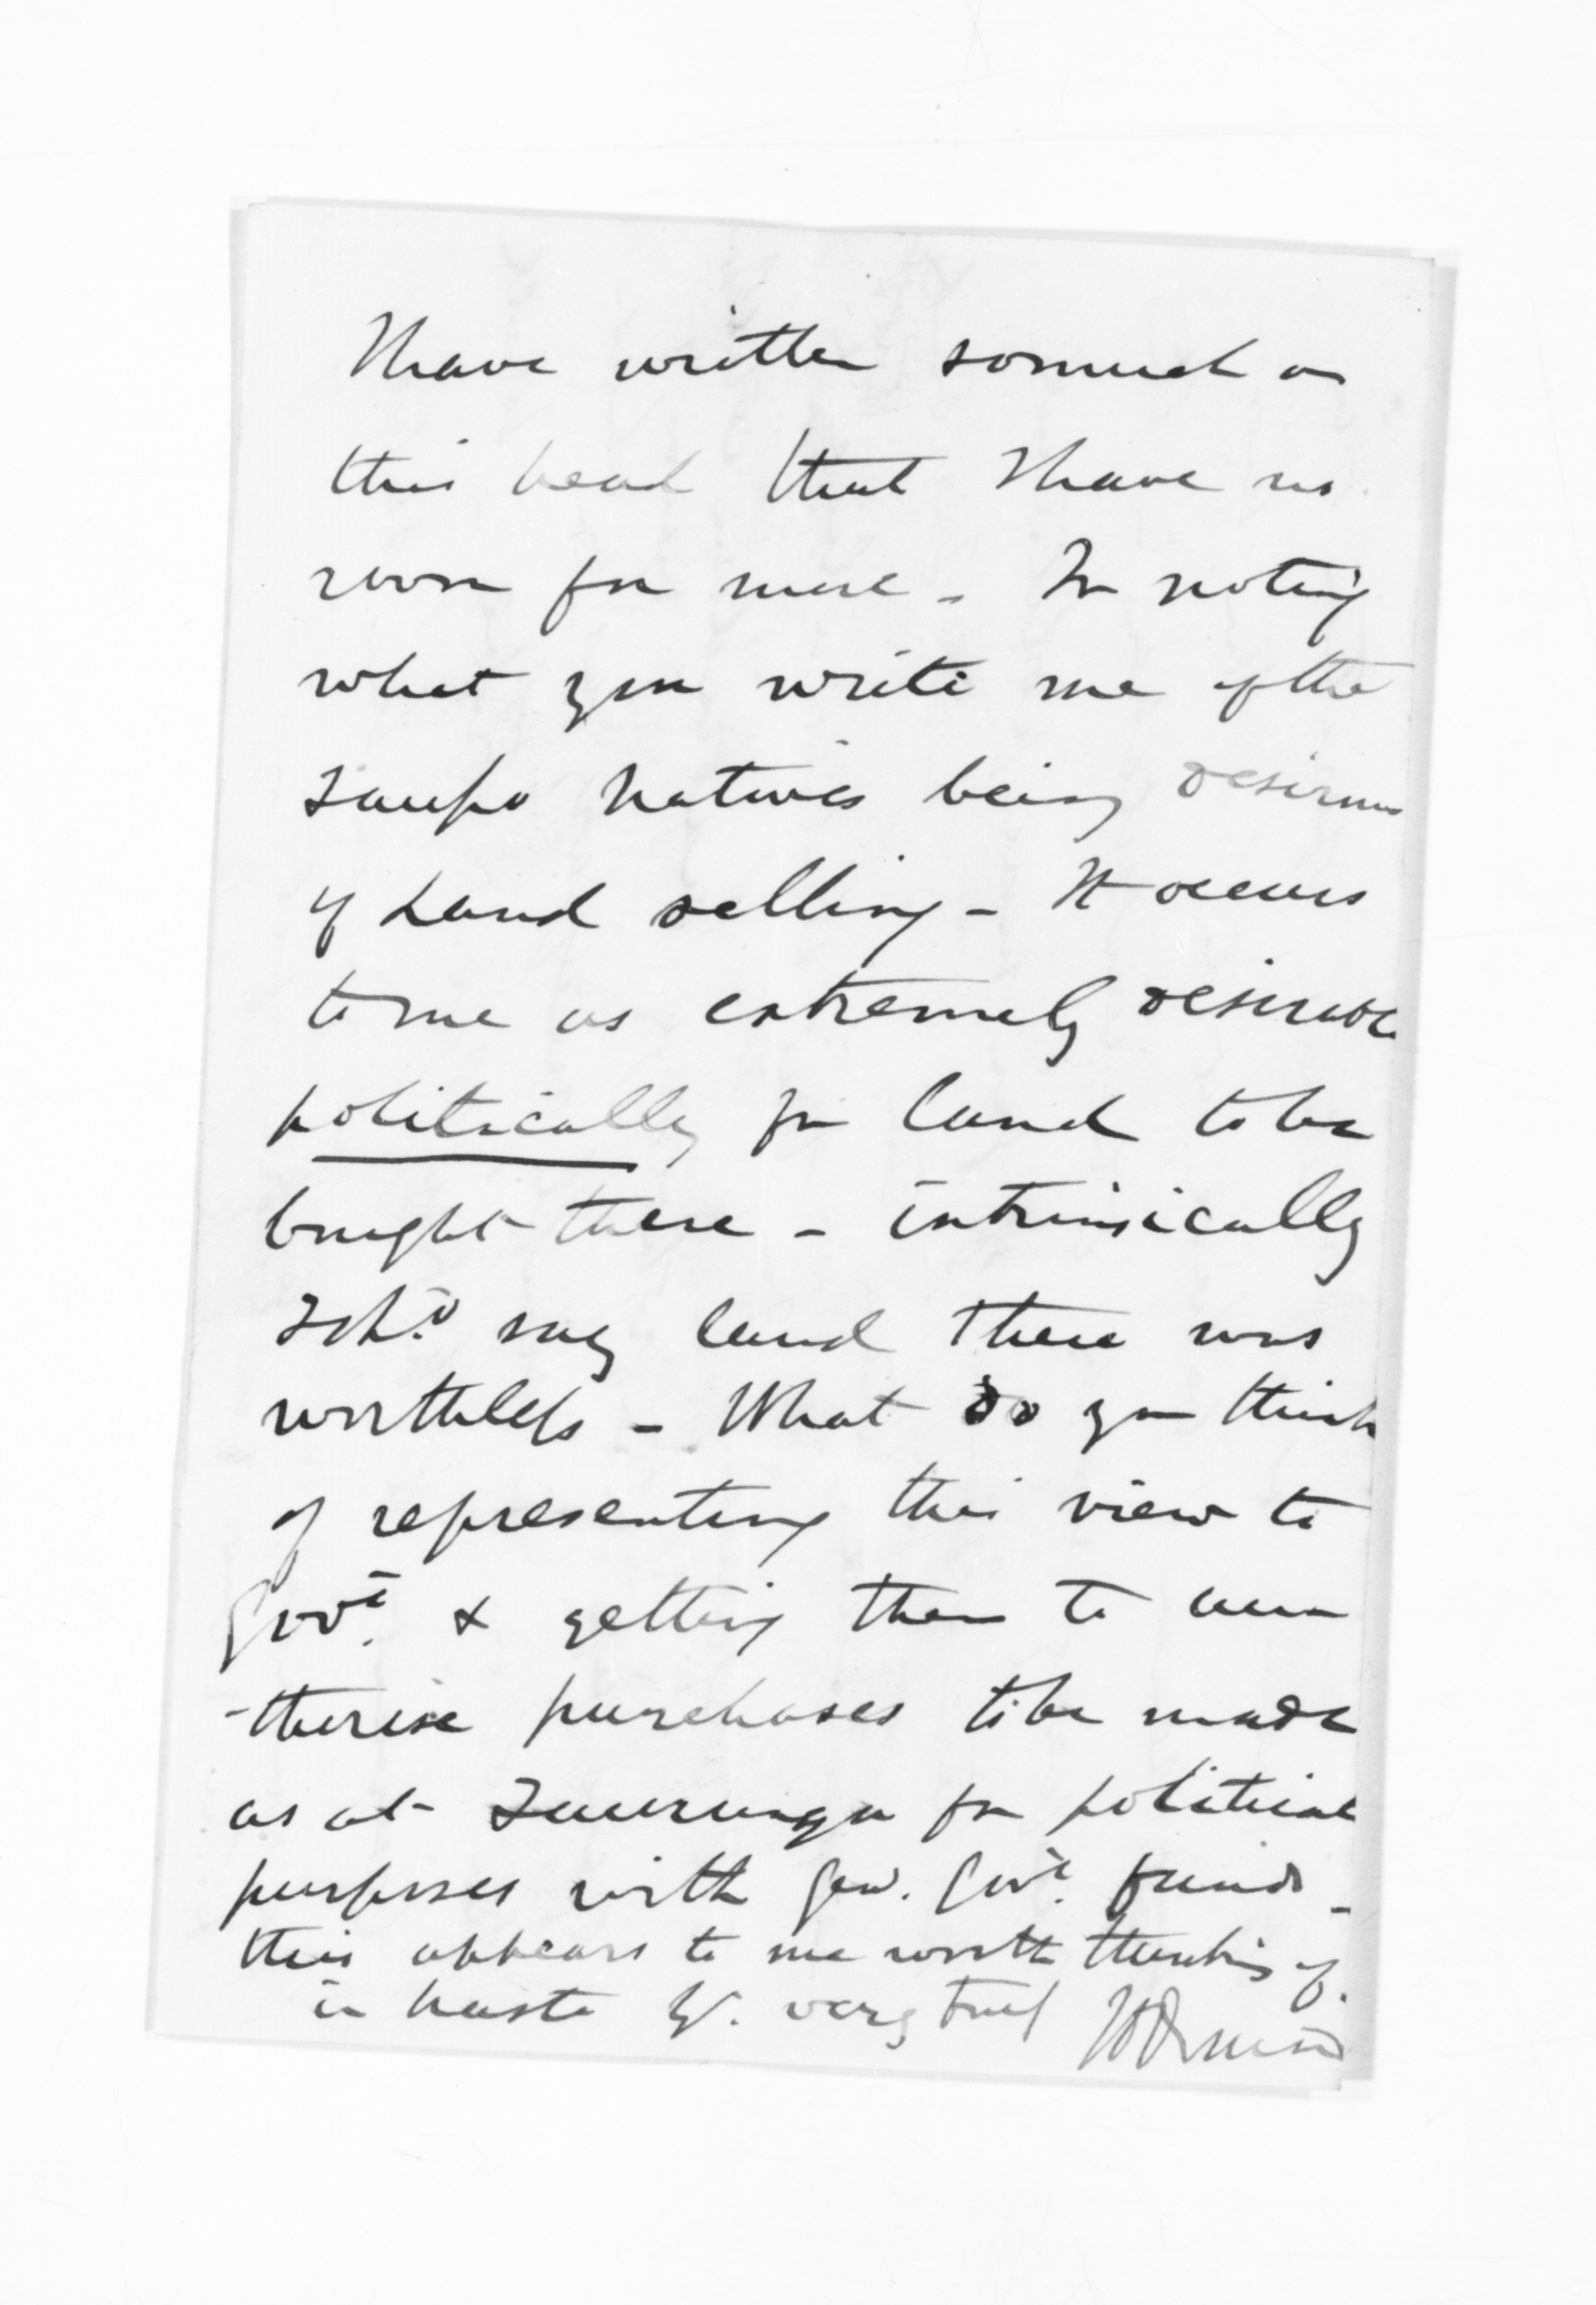 I have written so much on
this head that I have no
room for more - I'm noting
what you write me of the
Taupo Natives being desirous
of Land selling - It occurs
to me as extremely desirable
politically for land to be
bought there - intrinsically
I shd. say land there was
worthless - What do you think
of representing this view to
Govt. & getting them to au
-therise purchases to be made
as at Tauranga for political
purposes with Gen. Govt. funds -
this appears to me worth thinking of.
in haste Yr. very truly JDOrmond